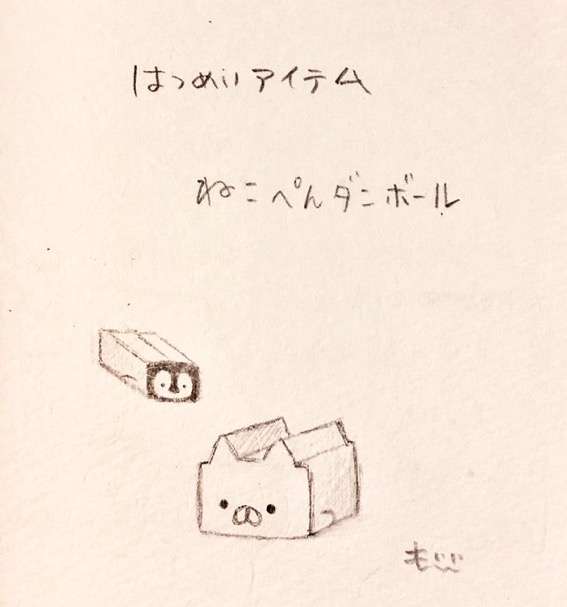 はつめいアイテム
ねこぺんダンボール
もじじ